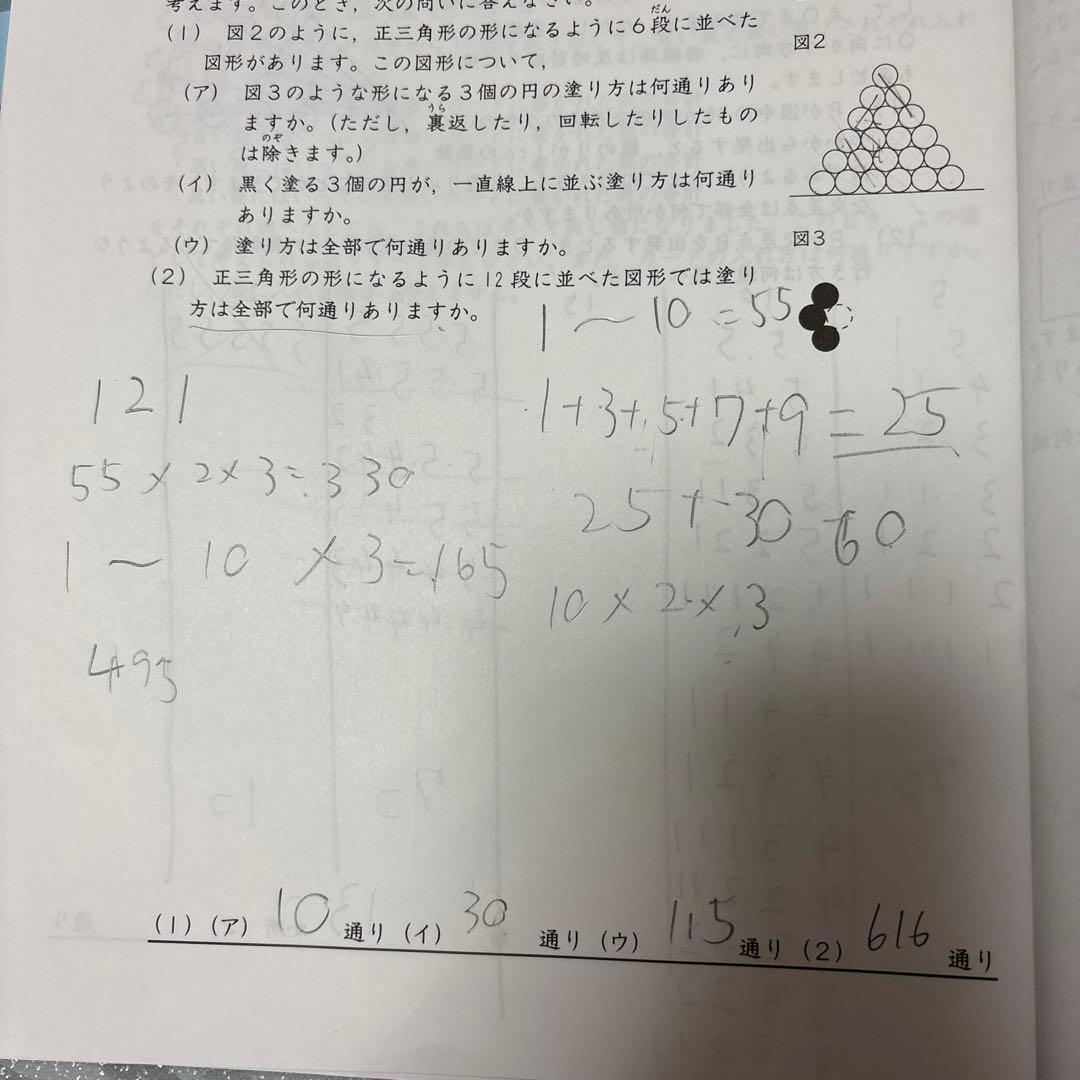 考えます。このとき，次の問いに答えなさい。
(1) 図2のように，正三角形の形になるように6段に並べた
図形があります。この図形について，
(ア) 図3のような形になる3個の円の塗り方は何通りあり
ますか。(ただし，裏返したり，回転したりしたもの
は除きます。)
(イ) 黒く塗る3個の円が，一直線上に並ぶ塗り方は何通り
ありますか。
(ウ) 塗り方は全部で何通りありますか。
(2) 正三角形の形になるように12段に並べた図形では塗り
方は全部で何通りありますか。
図2
図3
1 〜 10 = 55
1+3+5+7+9=25
25+30+60
10×2×3
121
55×2×3=330
1〜10 ×3=165
495
(1) (ア) 10 通り (イ) 30 通り (ウ) 115 通り (2) 616 通り